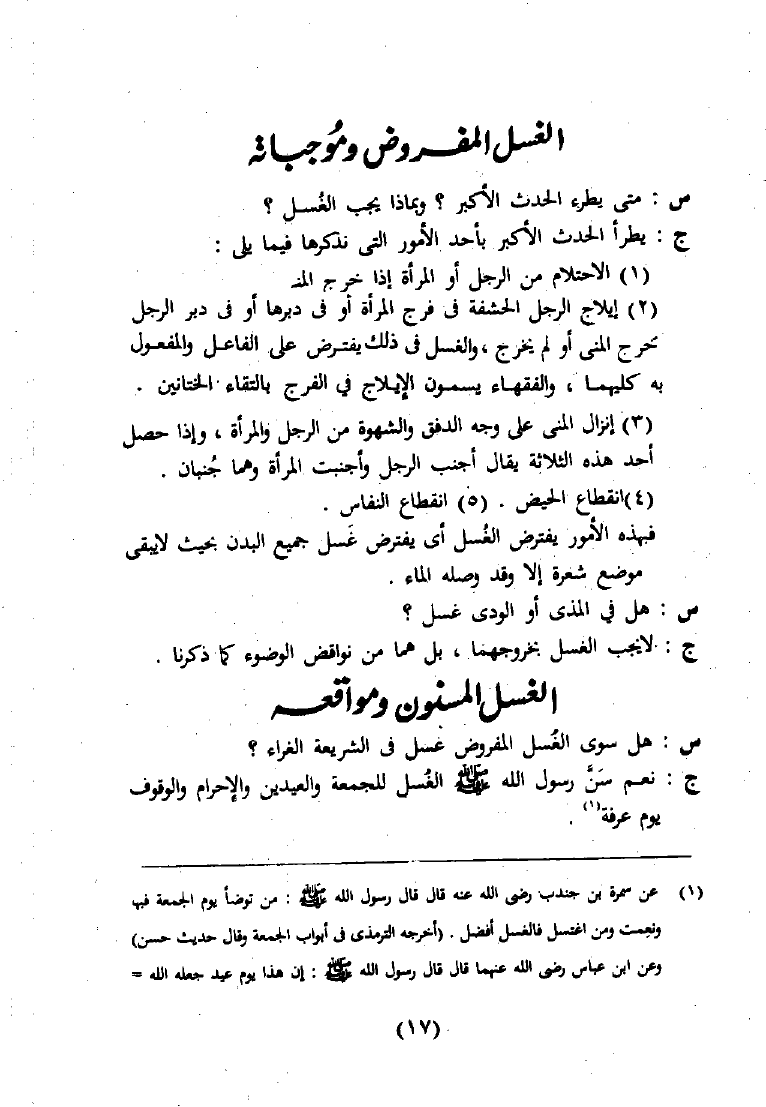 الغسل المفروض ومُوجباته
س : متى يطرء الحدث الأكبر ؟ وبماذا يجب الغُسل ؟
ج : يطرأ الحدث الأكبر بأحد الأمور التى نذكرها فيما يلى :
(١) الاحتلام من الرجل أو المرأة إذا خرج المنـ
(٢) إيلاج الرجل الحشفة فى فرج المرأة أو فى دبرها أو فى دبر الرجل
خرج المنى أو لم يخرج ، والغسل فى ذلك يفترض على الفاعل والمفعول
به كليهما ، والفقهاء يسمون الإيلاج في الفرج بالتقاء الختانين .
(٣) إنزال المنى على وجه الدفق والشهوة من الرجل والمرأة ، وإذا حصل
أحد هذه الثلاثة يقال أجنب الرجل وأجنبت المرأة وهما جُنبان .
(٤) انقطاع الحيض . (٥) انقطاع النفاس .
فبهذه الأمور يفترض الغُسل أى يفترض غَسل جميع البدن بحيث لايبقى
موضع شعرة إلا وقد وصله الماء .
س : هل في المذى أو الودى غسل ؟
ج : لايجب الغسل بخروجهما ، بل هما من نواقض الوضوء كما ذكرنا .
الغسل المسنون ومواقعه
س : هل سوى الغُسل المفروض غسل فى الشريعة الغراء ؟
ج : نعم سَنَّ رسول الله ﷺ الغُسل للجمعة والعيدين والإحرام والوقوف
يوم عرفة(١) .
(١) عن سمرة بن جندب رضى الله عنه قال قال رسول الله ﷺ : من توضأ يوم الجمعة فبها
ونعمت ومن اغتسل فالغسل أفضل . (أخرجه الترمذى فى أبواب الجمعة وقال حديث حسن)
وعن ابن عباس رضى الله عنهما قال قال رسول الله ﷺ : إن هذا يوم عيد جعله الله =
(١٧)